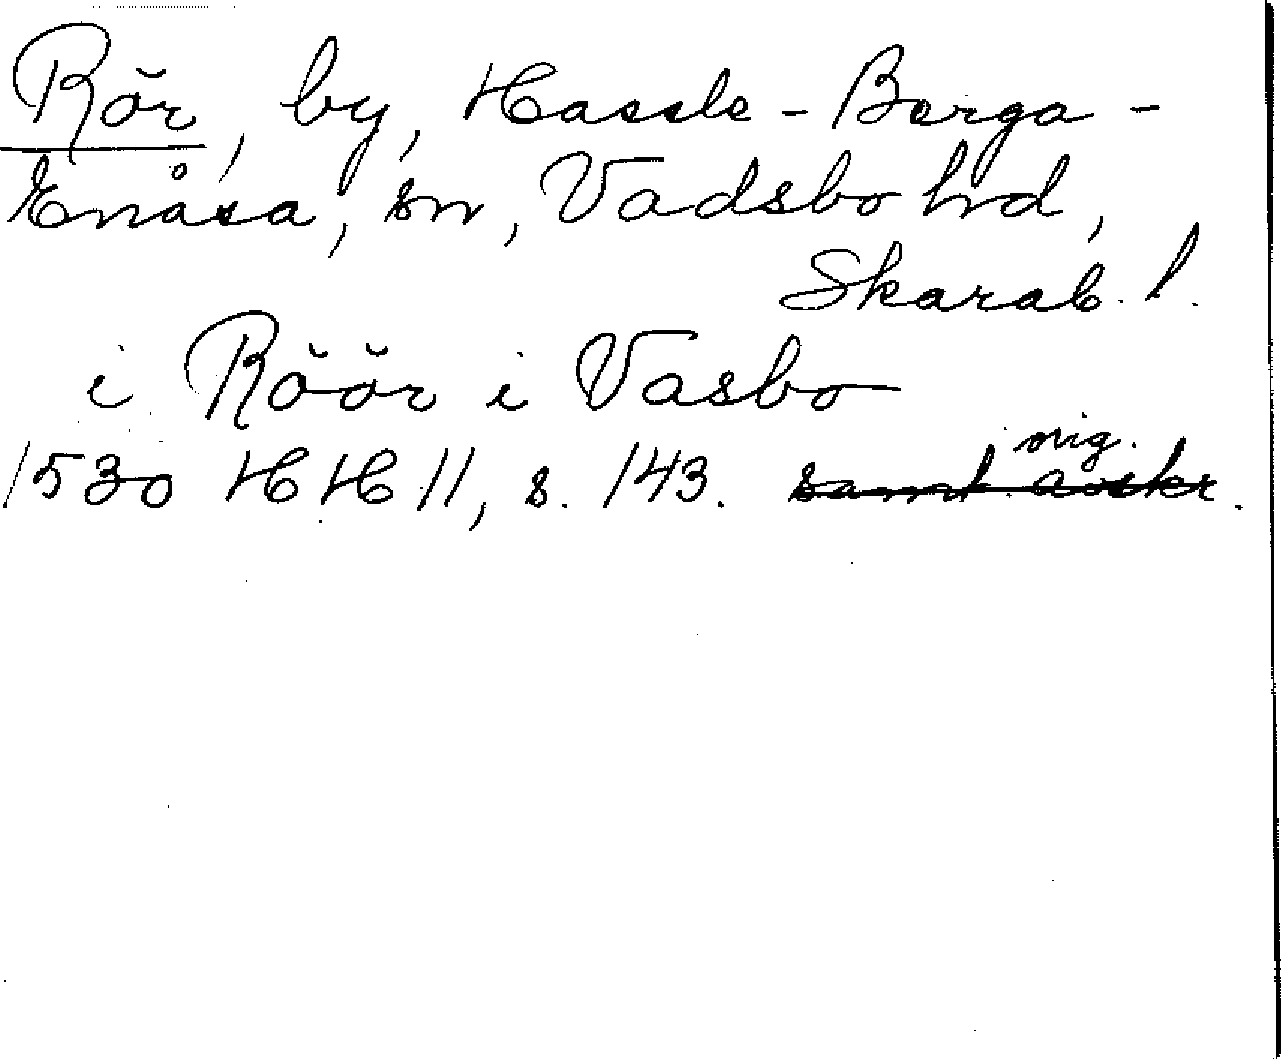 Rör, by, Hassle-Berga-
Enåsa, sn, Vadsbo hd,
Skarab. l.
i Röör i Vasbo
1530 HH 11, s. 143. orig. samt avskr.